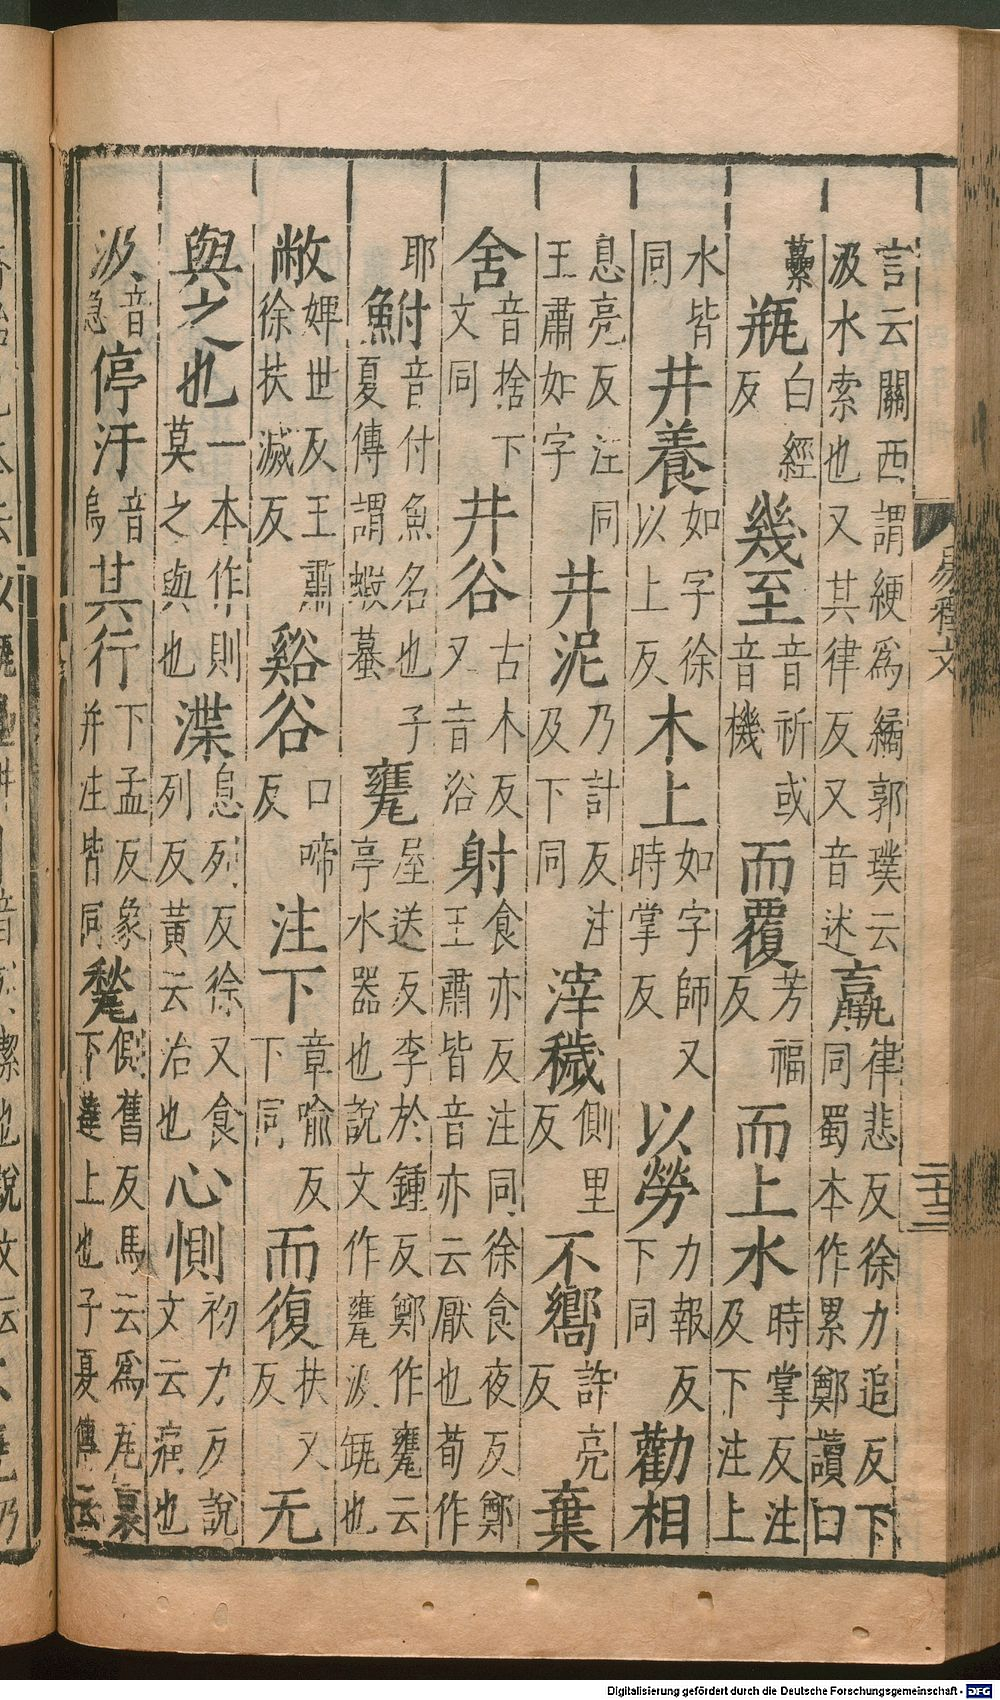 言云關西謂綆爲繘郭璞云
汲水索也又其律反又音述
羸
律悲反徐力追反下
同蜀本作累鄭讀曰
虆
缾
白經
反
幾至
音祈或
音機
而覆
芳福
反
而上水
時掌反注
及下注上
水皆
同
井養
如字徐
以上反
木上
如字師又
時掌反
以勞
力報反
下同
勸相
息亮反注同
王肅如字
井泥
乃計反注
及下同
滓穢
側里
反
不嚮
許亮
反
棄
舍
音捨下
文同
井谷
古木反
又音浴
射
食亦反注同徐食夜反鄭
王肅皆音亦云厭也荀作
耶
鮒
音付魚名也子
夏傳謂蝦蟇
甕
屋送反李於鍾反鄭作甕云
亭水器也說文作罋汲缾也
敝
婢世反王肅
徐扶滅反
谿谷
口啼
反
注下
章喻反
下同
而復
扶又
反
无
與之也
一本作則
莫之與也
渫
息列反徐又食
列反黃云治也
心惻
初力反說
文云痛也
汲
音
急
停汙
音
烏
其行
下孟反象
并注皆同
甃
側舊反馬云爲瓦裏
下達上也子夏傳云
易釋文
二十三
Digitalisierung gefördert durch die Deutsche Forschungsgemeinschaft - DFG